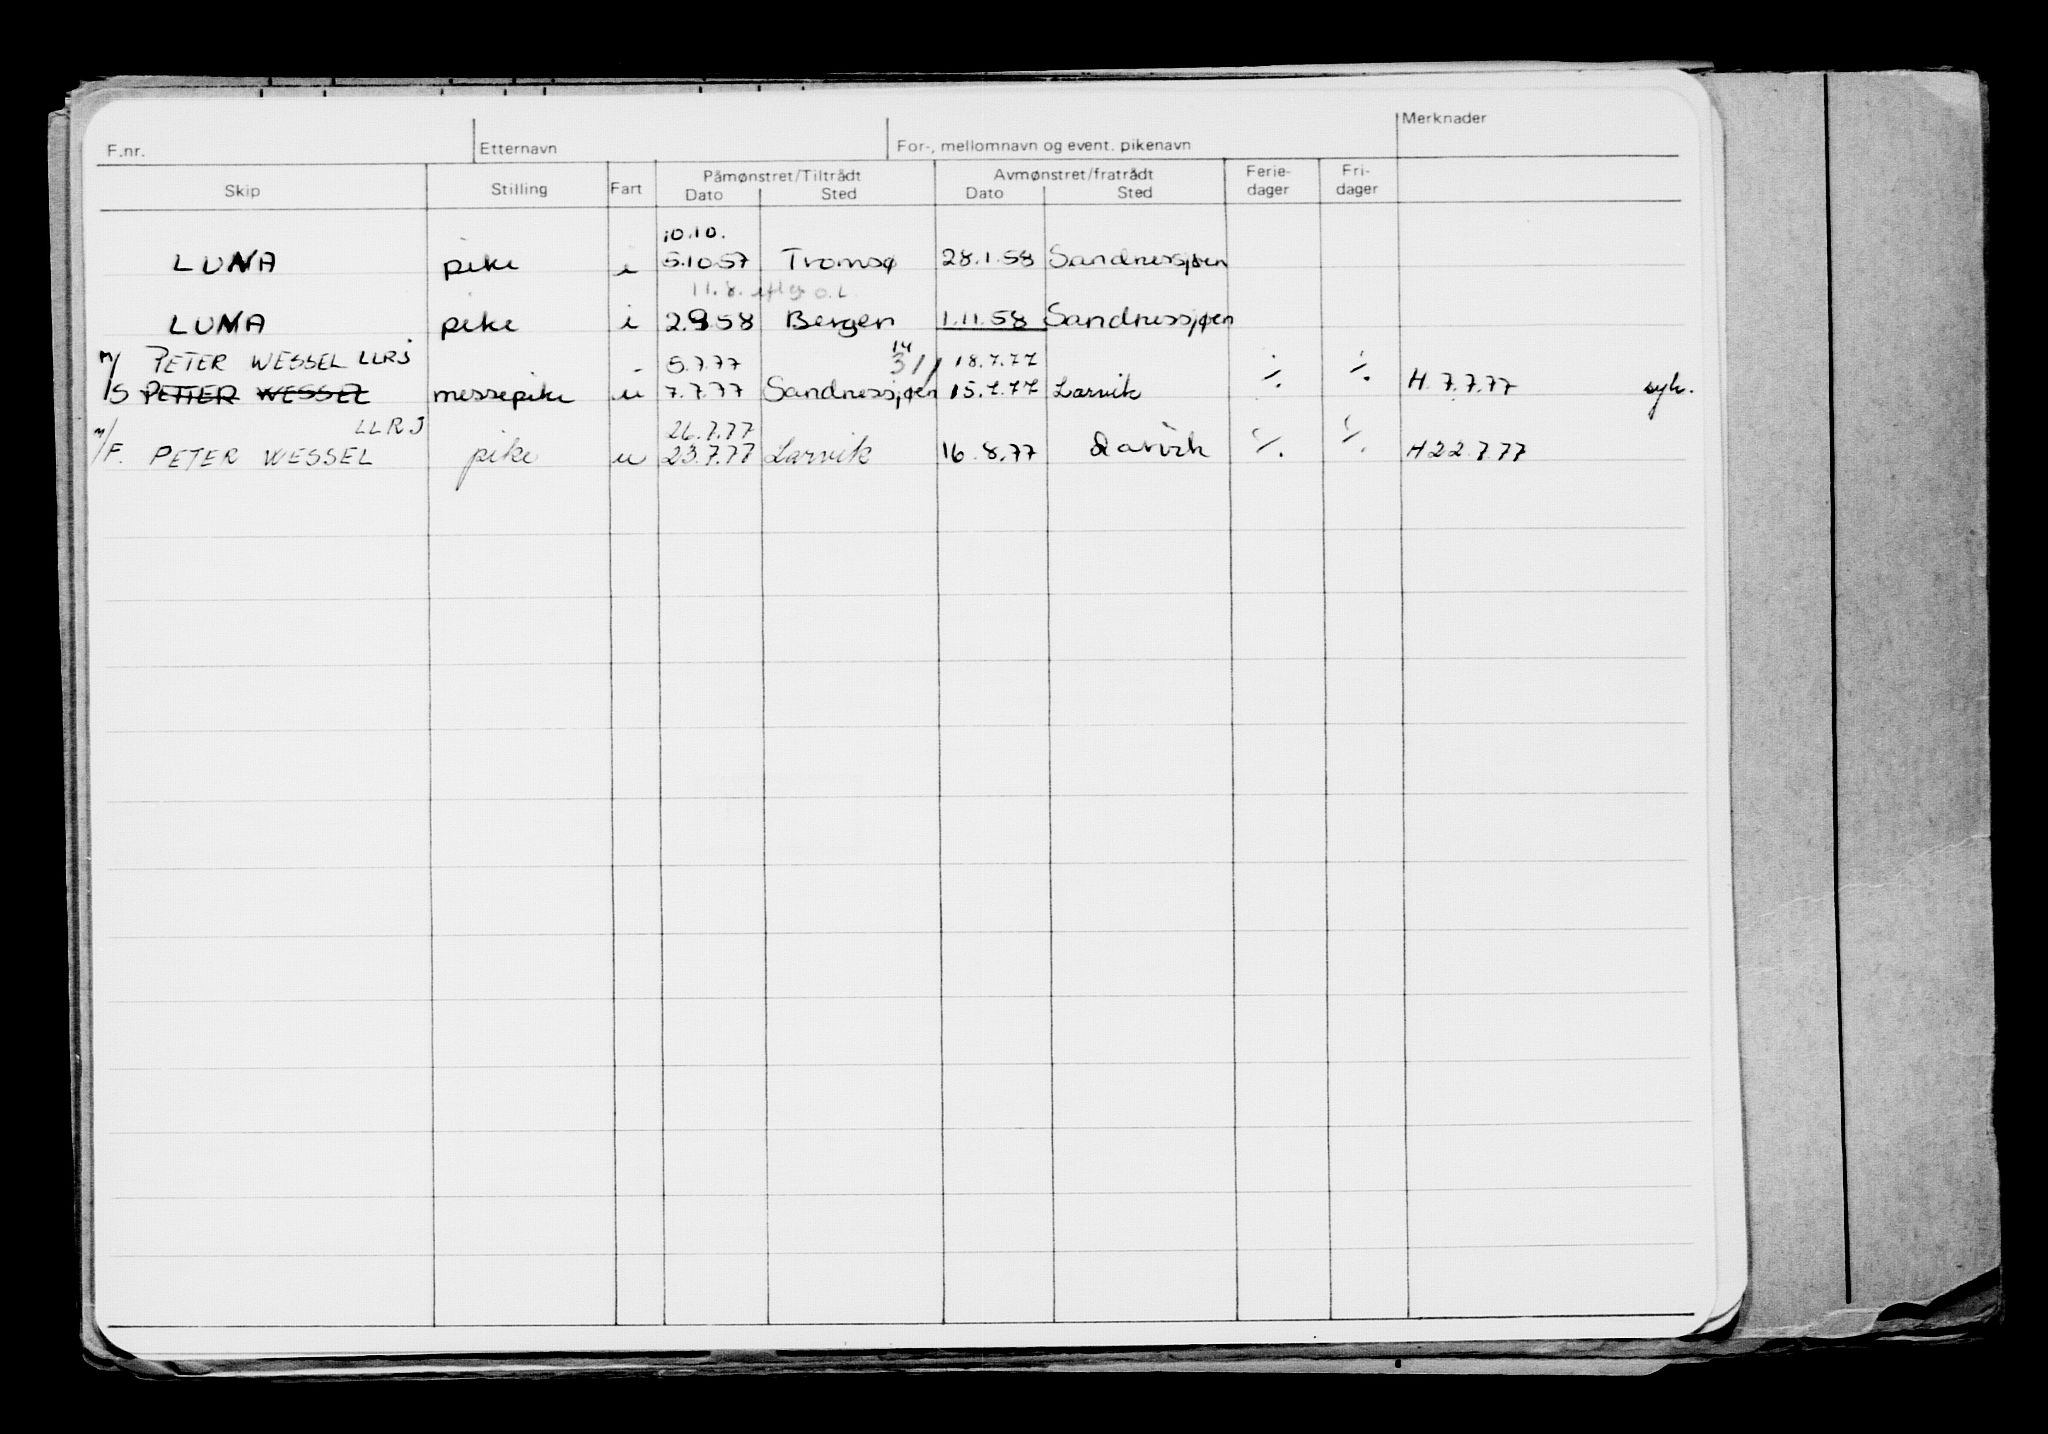 F.nr. Etternavn For-, mellomnavn og event. pikenavn Merknader
Skip Stilling Fart Påmønstret/Tiltrådt Dato Sted Avmønstret/fratrådt Dato Sted Ferie-dager Fri-dager
10.10.
LUNA pike i 5.10.57 Tromsø 28.1.58 Sandnessjøen
LUNA pike i 2.9.58 Bergen 1.11.58 Sandnessjøen
m/ PETER WESSEL LLRJ 5.7.77 14 18.7.77
/S PETTER WESSEL messepike u 7.7.77 Sandnessjøen 15.7.77 Larvik ./. ./. H 7.7.77 syk.
LLRJ 26.7.77
m/F. PETER WESSEL pike u 23.7.77 Larvik 16.8.77 Larvik ./. ./. H 22.7.77